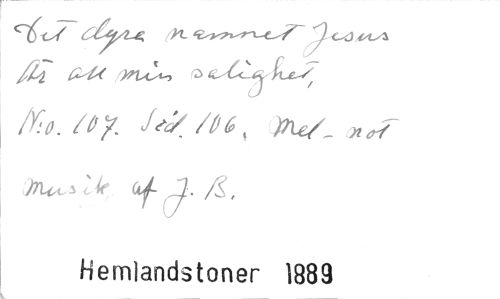 Det dyra namnet Jesus
Är all min salighet,
N:o. 107. Sid. 106. Mel-not
Musik af J. B.
Hemlandstoner 1889